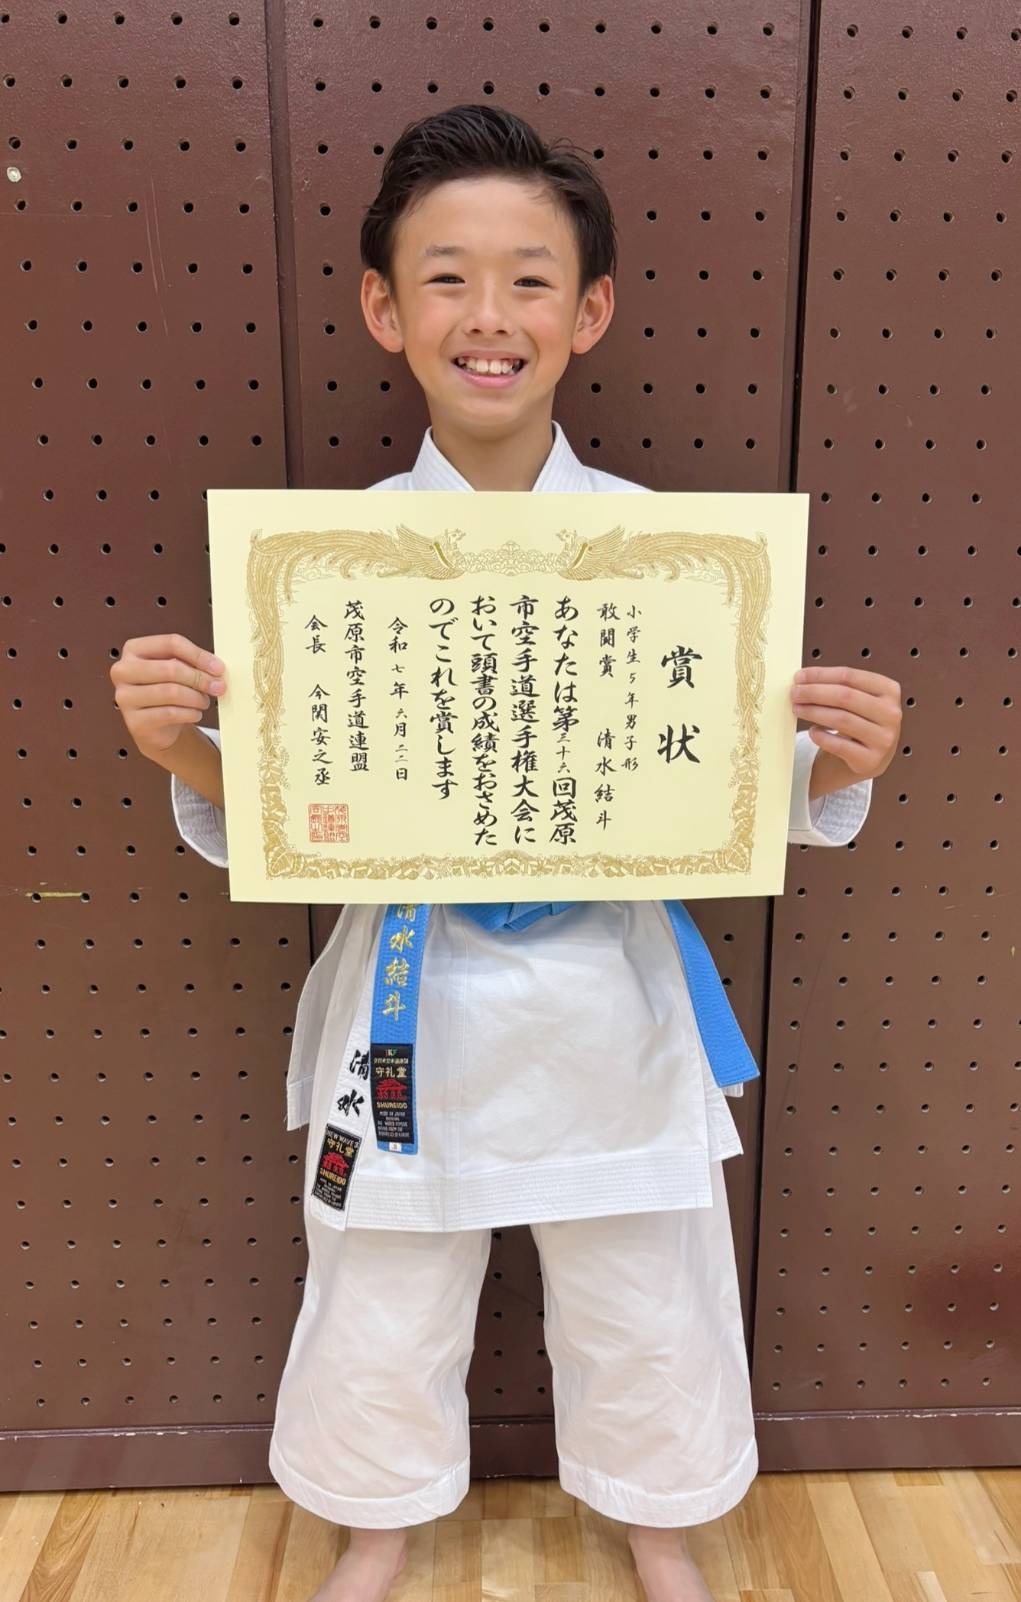 賞状
小学生5年男子形
敢闘賞 清水結斗
あなたは第三十六回茂原
市空手道選手権大会に
おいて頭書の成績をおさめた
のでこれを賞します
令和七年六月二二日
茂原市空手道連盟
会長 今関安之丞
清水結斗
守礼堂
SHUREIDO
清水
NEW WAVE 3
守礼堂
SHUREIDO